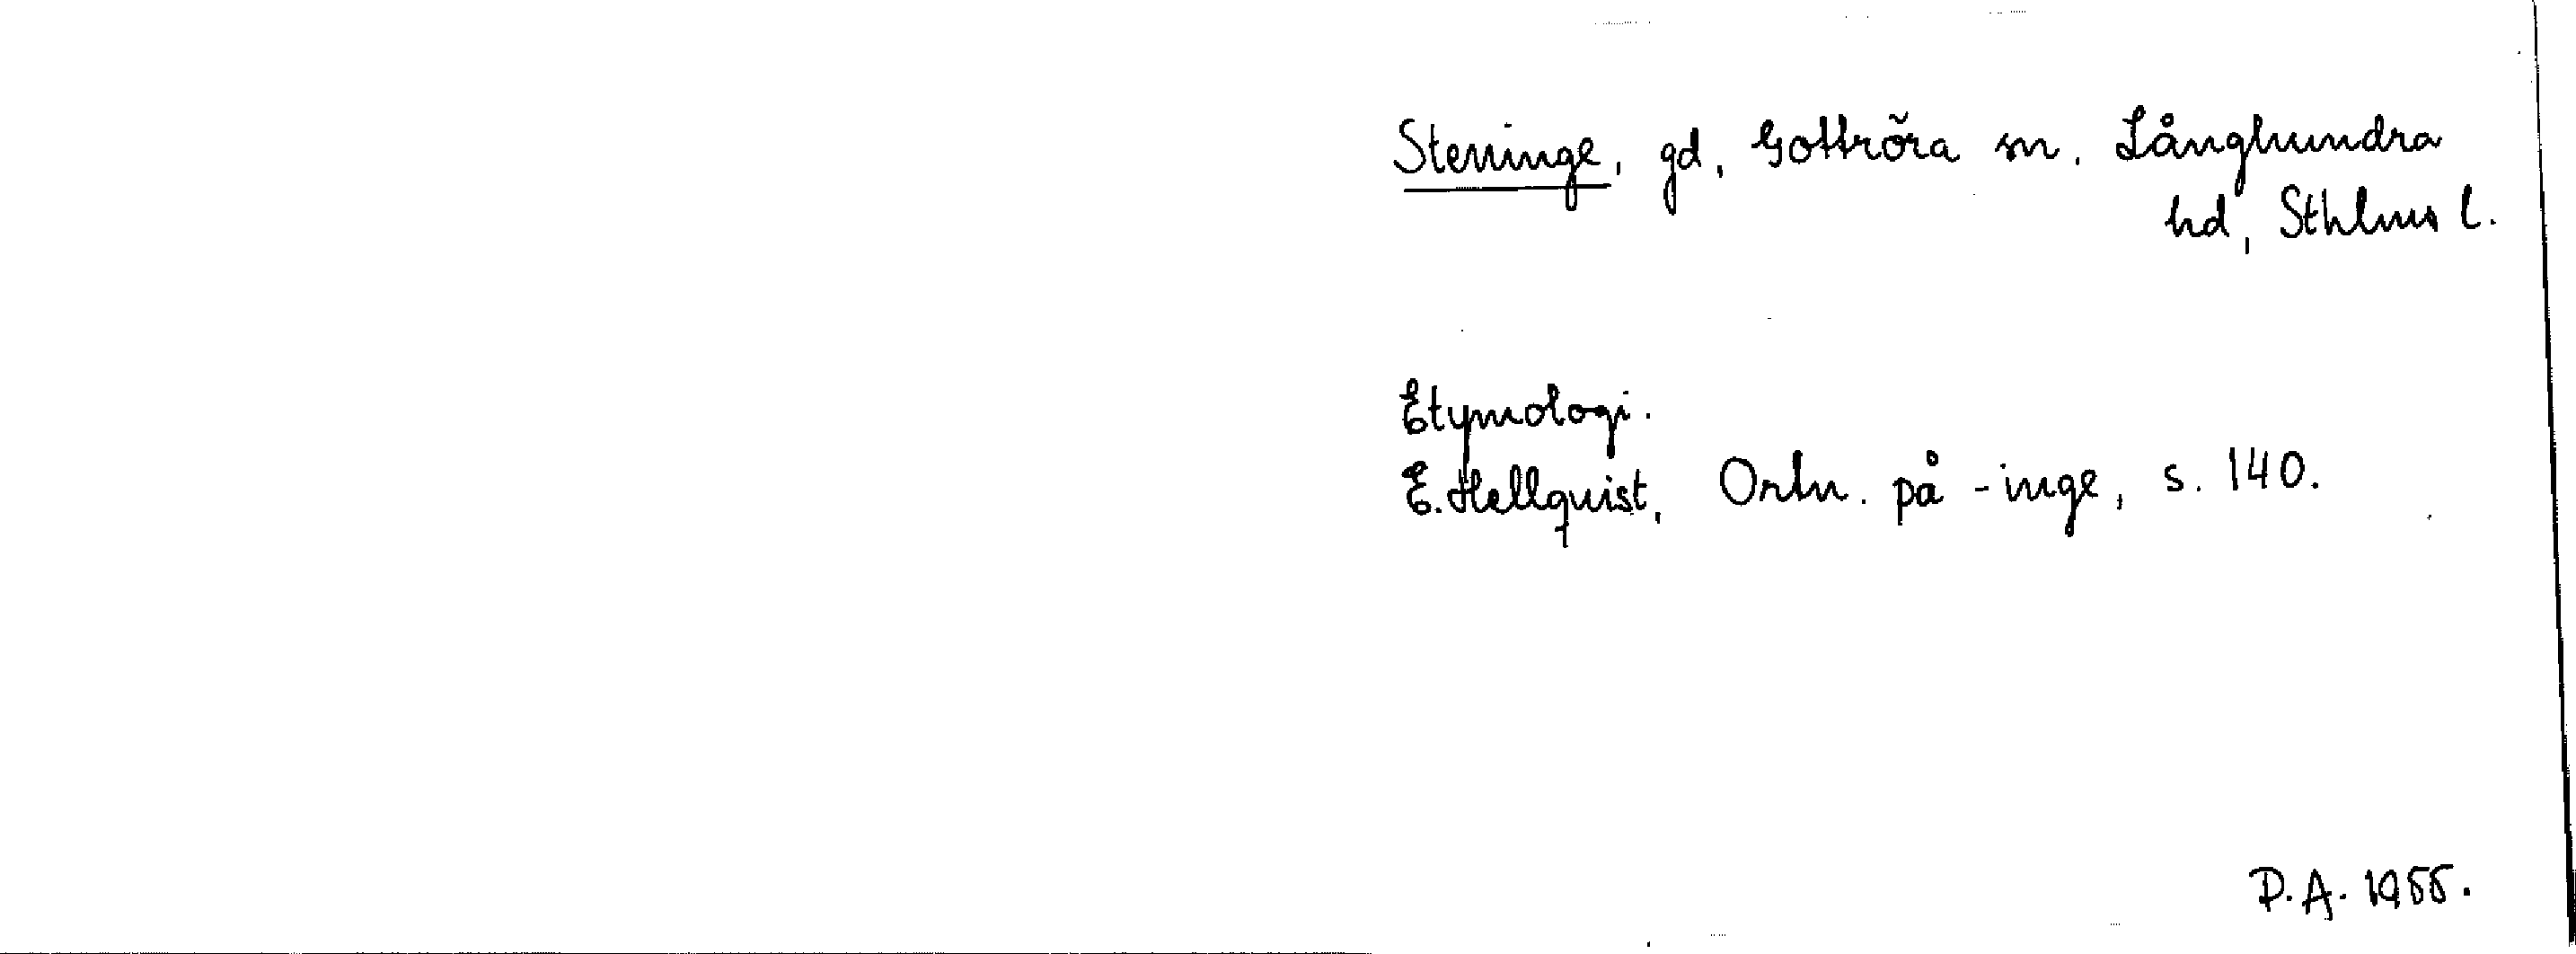 Steninge, gd, Gottröra sn. Långhundra
hd, Sthlms l.
Etymologi.
E. Hellquist, Ortn. på -inge, s. 140.
P.A. 1955.